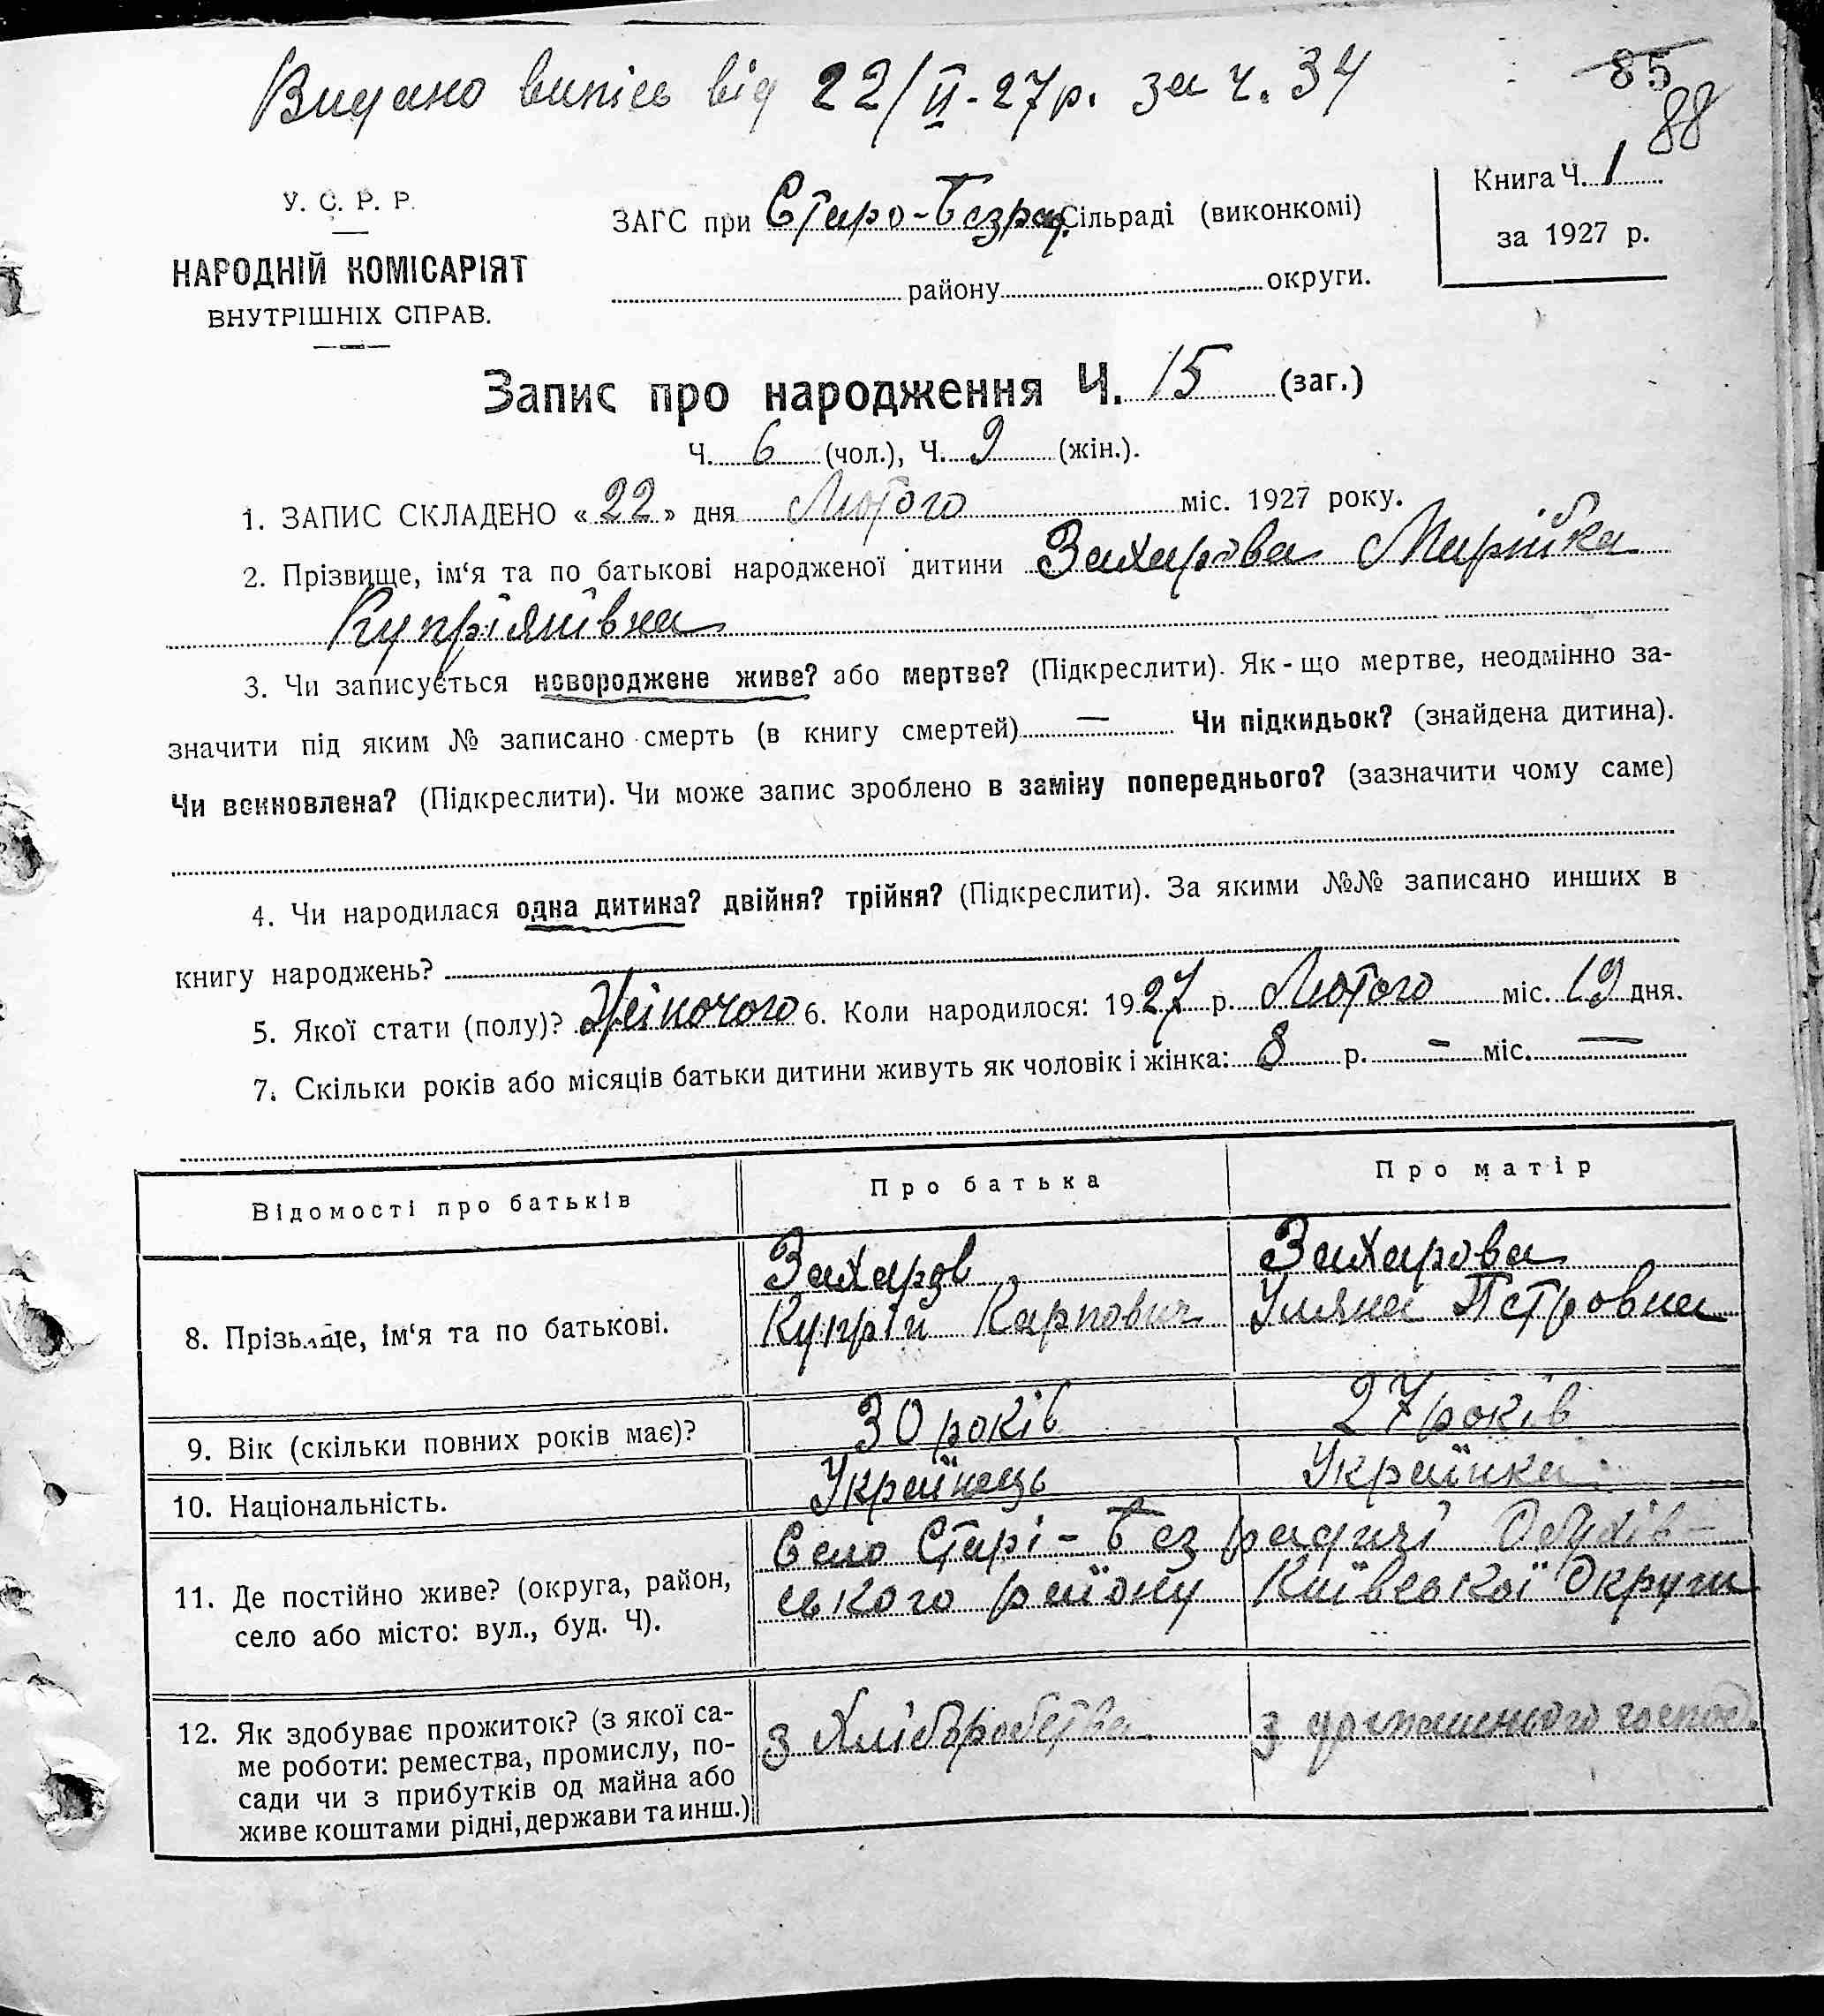 Видано випісь від 22/II-27р. за ч. 34
85
88
У. С. Р. Р.
НАРОДНІЙ КОМІСАРІЯТ
ВНУТРІШНІХ СПРАВ.
ЗАГС при Старо-Безрад. Сільраді (виконкомі)
району округи.
Книга Ч. 1
за 1927 р.
Запис про народження Ч. 15 (заг.)
Ч. 6 (чол.), Ч. 9 (жін.).
1. ЗАПИС СКЛАДЕНО « 22 » дня Лютого міс. 1927 року.
2. Прізвище, ім‘я та по батькові народженої дитини Захарова Марійка
Купріянівна
3. Чи записується новороджене живе? або мертве? (Підкреслити). Як-що мертве, неодмінно за-
значити під яким № записано смерть (в книгу смертей) — Чи підкидьок? (знайдена дитина).
Чи всиновлена? (Підкреслити). Чи може запис зроблено в заміну попереднього? (зазначити чому саме)
4. Чи народилася одна дитина? двійня? трійня? (Підкреслити). За якими №№ записано инших в
книгу народжень?
5. Якої стати (полу)? Жіночого 6. Коли народилося: 1927 р. Лютого міс. 19 дня.
7. Скільки років або місяців батьки дитини живуть як чоловік і жінка: 8 р. - міс. —
Відомості про батьків Про батька Про матір
8. Прізвище, ім‘я та по батькові.
Захаров
Купрій Карпович
Захарова
Уляна Петровна
9. Вік (скільки повних років має)? 30 років 27 років
10. Національність. Українець Українка
11. Де постійно живе? (округа, район,
село або місто: вул., буд. Ч).
Село Старі-Безрадичі Обухів-
ського району Київської Округи
12. Як здобуває прожиток? (з якої са-
ме роботи: ремества, промислу, по-
сади чи з прибутків од майна або
живе коштами рідні, держави та инш.)
з Хліборобства
з домашнього господ.